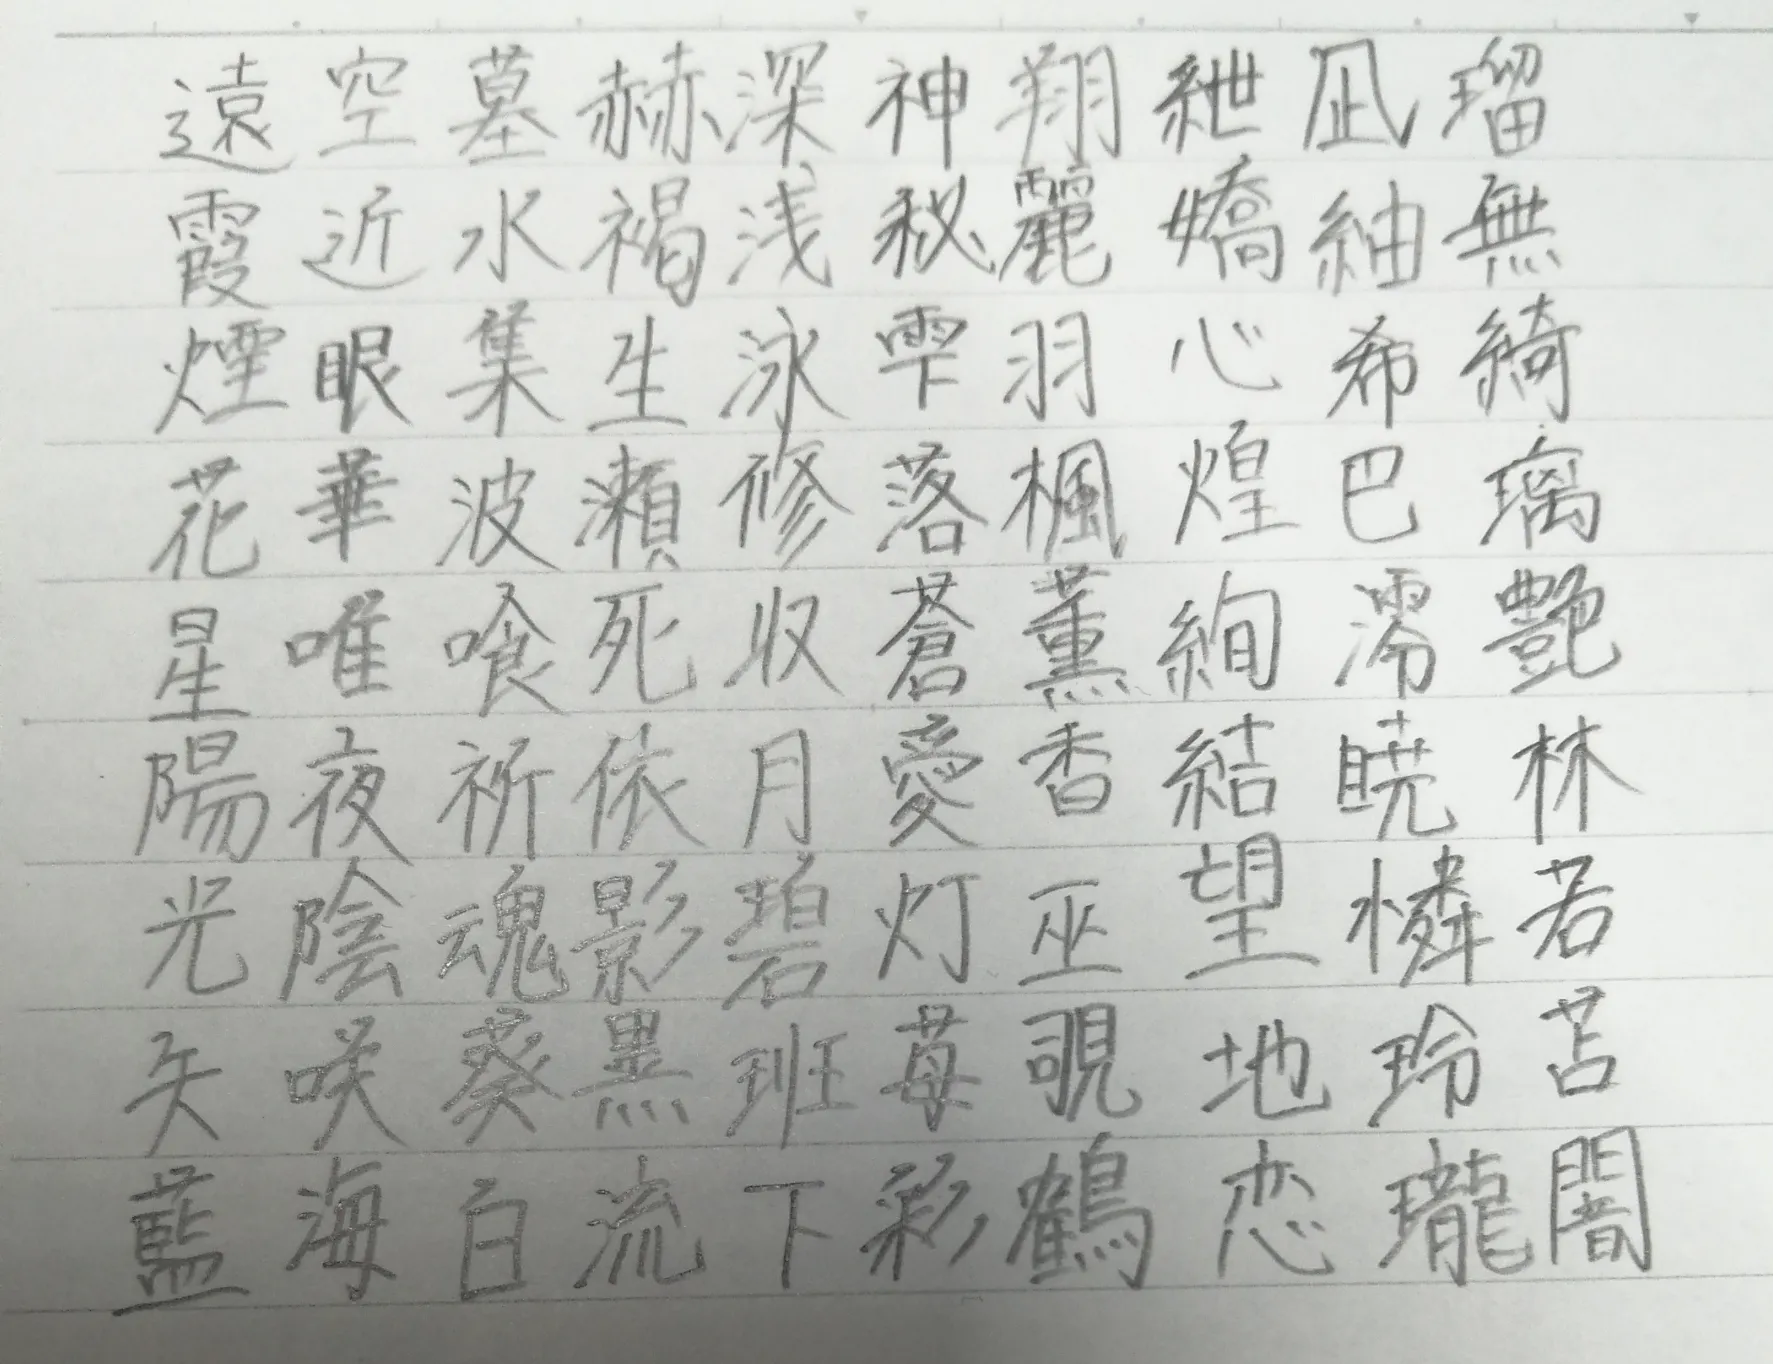 遠空墓赫深神翔紲凪瑠
霞近水褐浅秘麗嬌紬無
煙眼集生泳雫羽心希綺
花華波瀬修落楓煌巴璃
星唯喰死収蒼薫絢澪艶
陽夜祈依月愛香結暁林
光陰魂影碧灯巫望憐若
矢咲葵黒班苺覗地玲苫
藍海白流下彩鶴恋瓏闇